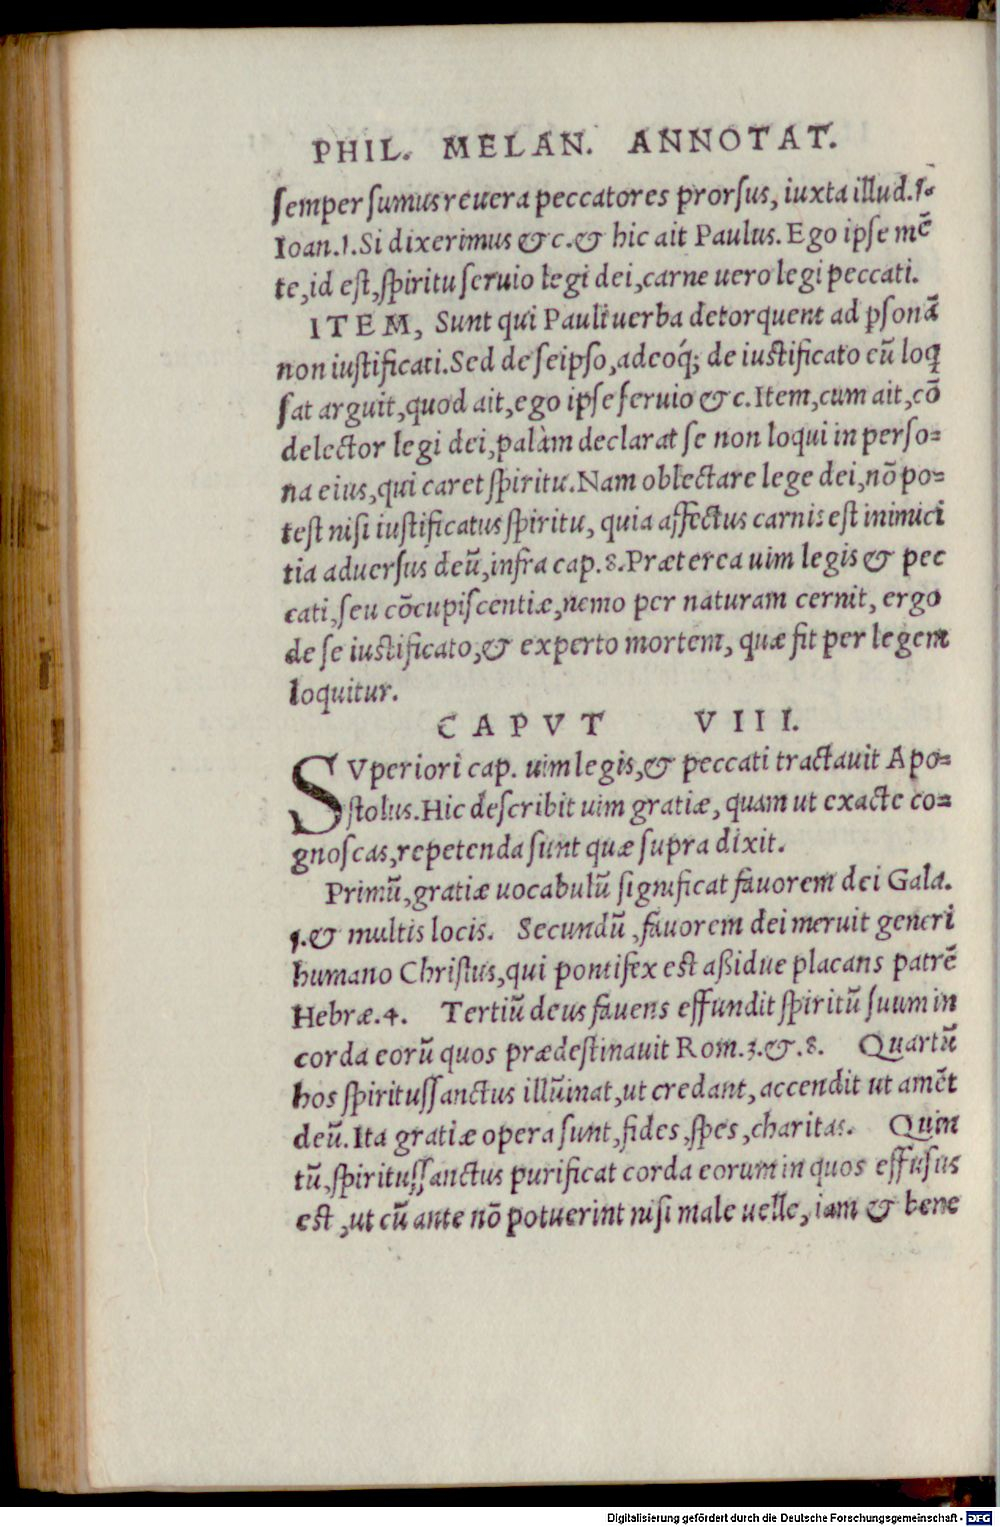 PHIL. MELAN. ANNOTAT.
semper sumus reuera peccatores prorsus, iuxta illud.1.
Ioan.1.Si dixerimus &c.& hic ait Paulus. Ego ipse mẽ
te,id est,spiritu seruio legi dei,carne uero legi peccati.
ITEM, Sunt qui Pauli uerba detorquent ad ꝑsonã
non iustificati.Sed de seipso,adeoq́; de iustificato cũ loq̃
sat arguit,quod ait,ego ipse seruio &c.Item,cum ait,cõ
delector legi dei,palàm declarat se non loqui in perso-
na eius,qui caret spiritu.Nam oblectare lege dei,nõ po-
test nisi iustificatus spiritu, quia affectus carnis est inimici
tia aduersus deũ,infra cap.8.Præterea uim legis & pec
cati,seu cõcupiscentiæ,nemo per naturam cernit, ergo
de se iustificato,& experto mortem, quæ fit per legem
loquitur.
CAPVT VIII.
SVperiori cap. uim legis,& peccati tractauit Apo-
stolus.Hic describit uim gratiæ, quam ut exacte co-
gnoscas,repetenda sunt quæ supra dixit.
Primũ,gratiæ uocabulũ significat fauorem dei Gala.
1.& multis locis. Secundũ ,fauorem dei meruit generi
humano Christus,qui pontifex est aßidue placans patrẽ
Hebræ.4. Tertiũ deus fauens effundit spiritũ suum in
corda eorũ quos prædestinauit Rom.3.&.8. Quartũ
hos spiritussanctus illũinat,ut credant,accendit ut amẽt
deũ.Ita gratiæ opera sunt,fides,spes,charitas. Quin
tũ,spiritussanctus purificat corda eorum in quos effusus
est ,ut cũ ante nõ potuerint nisi male uelle, iam & bene
Digitalisierung gefördert durch die Deutsche Forschungsgemeinschaft - DFG